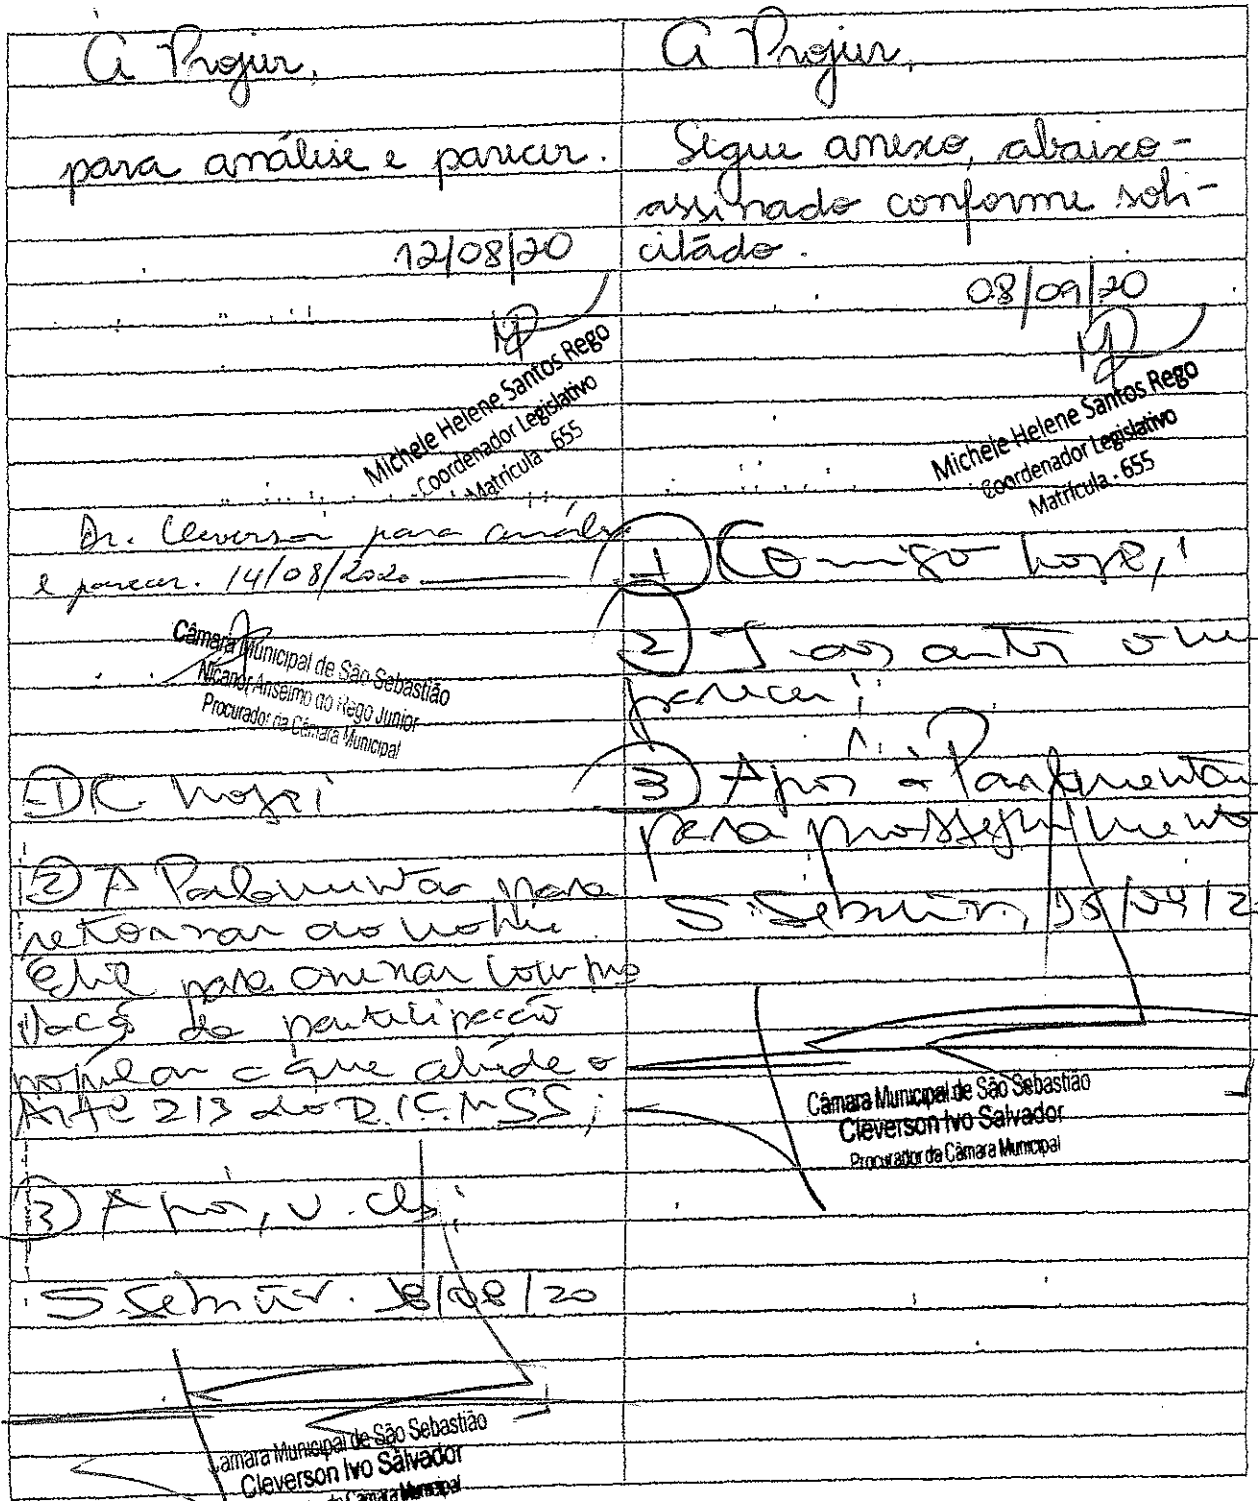 À Projur,
para análise e parecer.
12/08/20
Michele Helene Santos Rego
Coordenador Legislativo
Matrícula - 655
Dr. Cleverson para análise
e parecer. 14/08/2020
Câmara Municipal de São Sebastião
Nicanor Anselmo do Rego Junior
Procurador da Câmara Municipal
hoje;
② A Parlamentar para
retornar ao nobre
Edil para anexar compro
vação da participação
popular a que alude o
213 do R.I.C.M.SS;
③ Após, v. cls;
S. Sebastião. 18/08/20
Câmara Municipal de São Sebastião
Cleverson Ivo Salvador
Câmara Municipal
À Projur,
Segue anexo, abaixo-
assinado conforme soli-
citado.
08/09/20
Michele Helene Santos Rego
Coordenador Legislativo
Matrícula - 655
① Comigo hoje;
② aos autos o meu
parecer;
③ Após à Parlamentar
para prosseguimento
S. Sebastião,
Câmara Municipal de São Sebastião
Cleverson Ivo Salvador
Procurador da Câmara Municipal